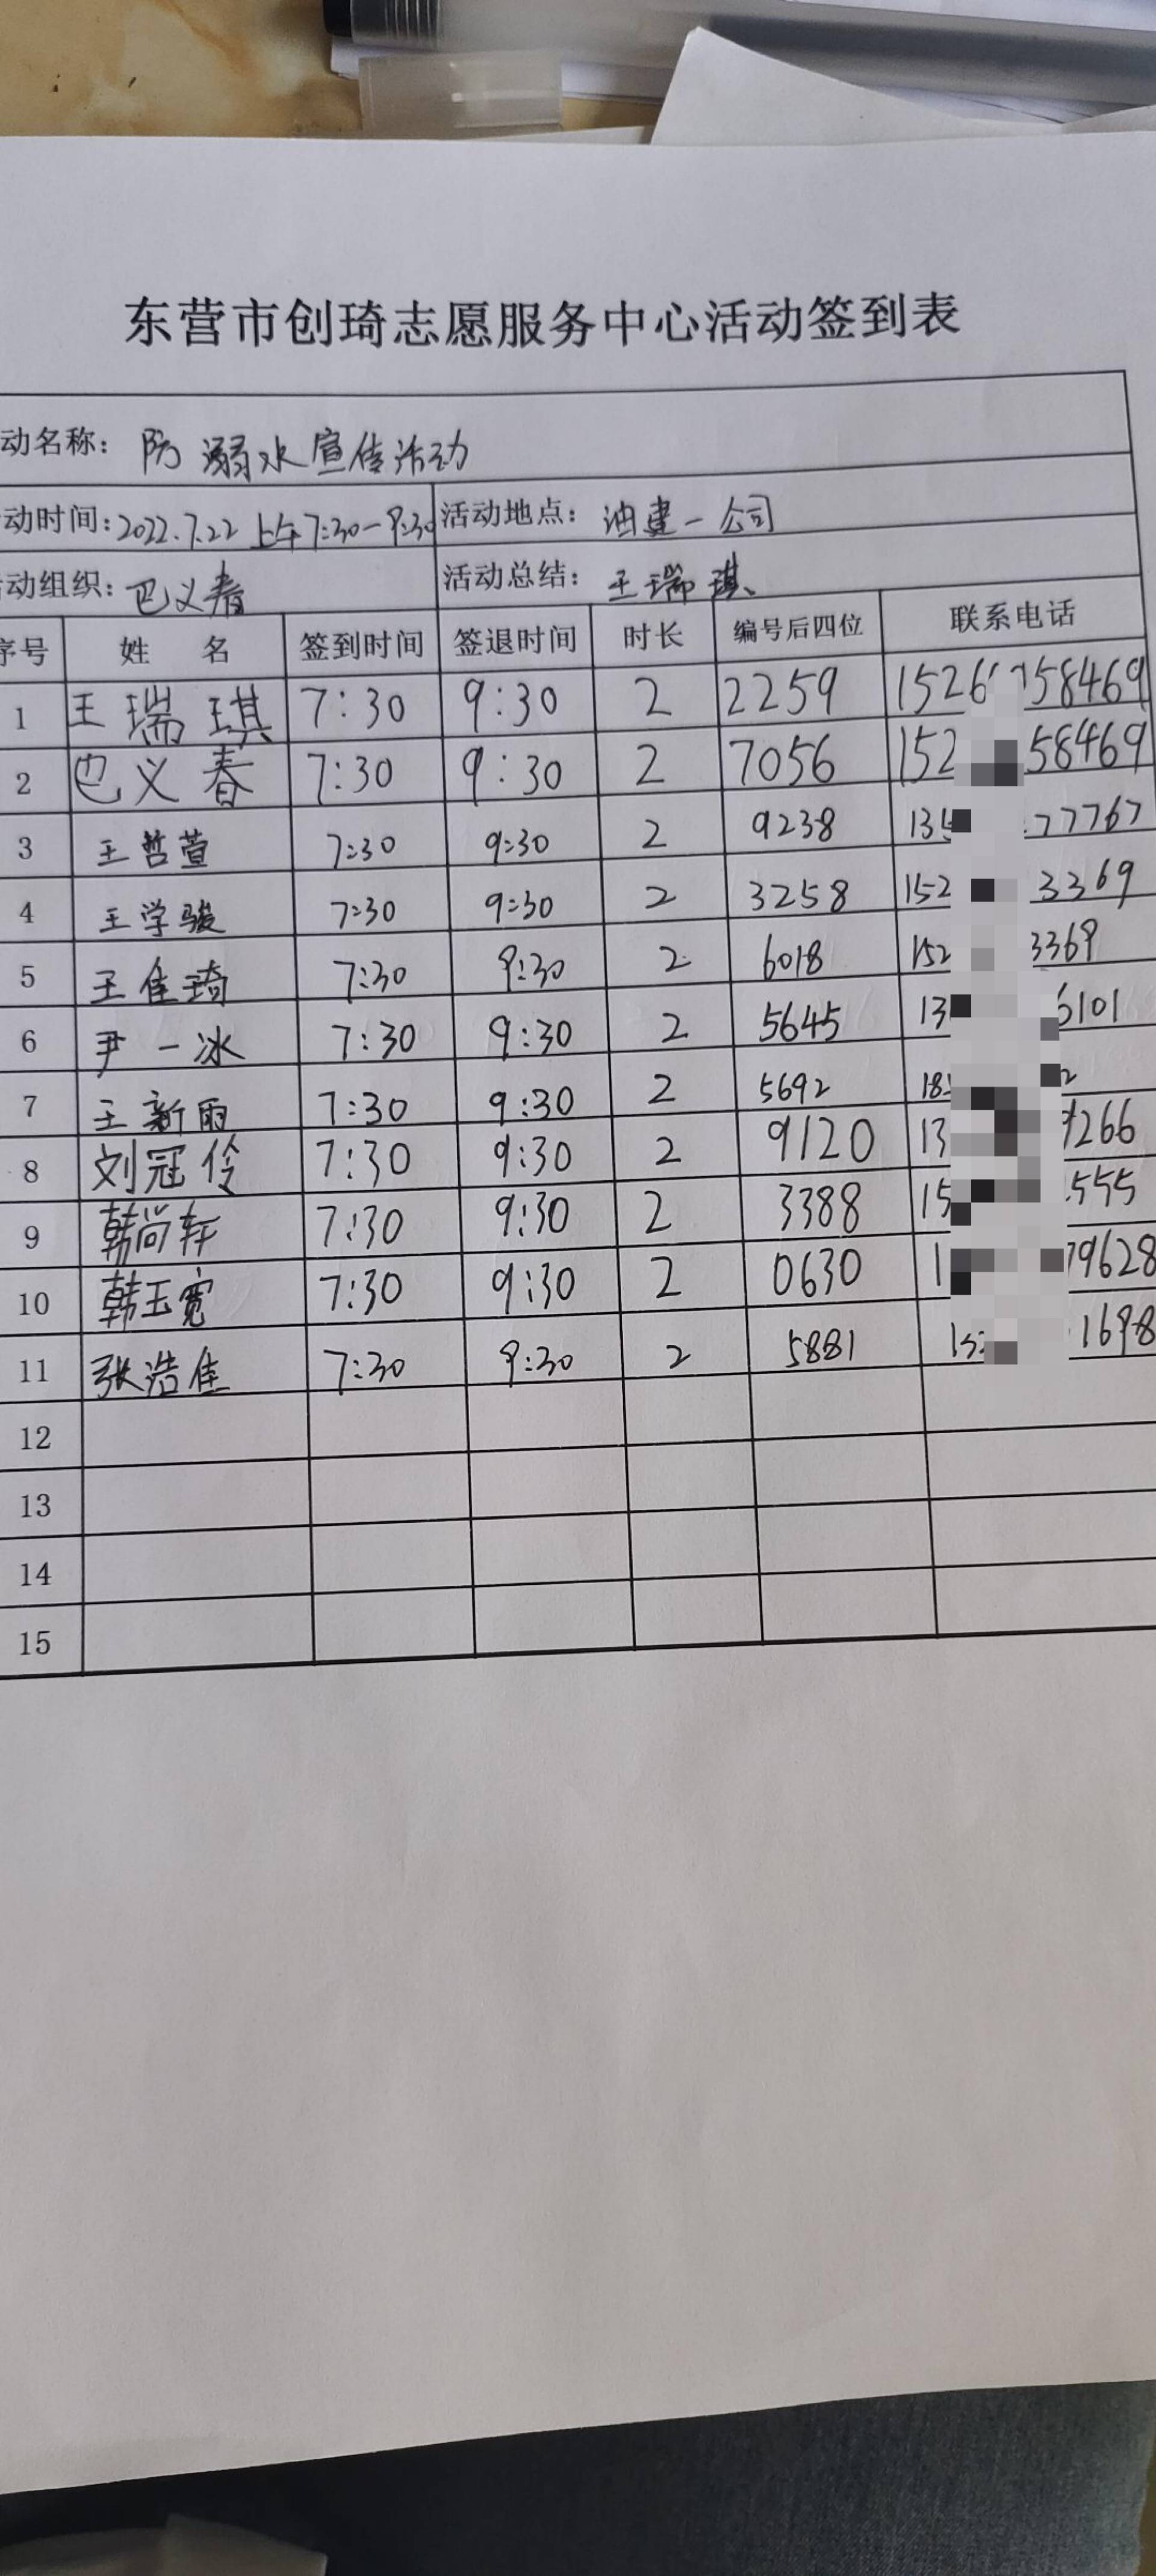 东营市创琦志愿服务中心活动签到表
动名称: 防溺水宣传活动
动时间: 2022.7.22 上午7:30-9:30 活动地点: 油建一公司
动组织: 巴义春 活动总结: 王瑞琪
序号 姓 名 签到时间 签退时间 时长 编号后四位 联系电话
1 王瑞琪 7:30 9:30 2 2259 1526 58469
2 巴义春 7:30 9:30 2 7056 152 58469
3 王哲萱 7:30 9:30 2 9238 13 77767
4 王学骏 7:30 9:30 2 3258 152 3369
5 王佳琦 7:30 9:30 2 6018 152 3369
6 尹一冰 7:30 9:30 2 5645 13 6101
7 王新雨 7:30 9:30 2 5692 18 2
8 刘冠伶 7:30 9:30 2 9120 13 9266
9 韩尚轩 7:30 9:30 2 3388 15 555
10 韩玉宽 7:30 9:30 2 0630 1 79628
11 张浩佳 7:30 9:30 2 5881 15 1698
12
13
14
15